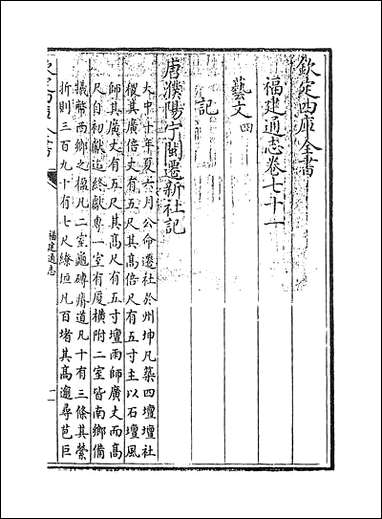 欽定四庫全書
福建通志卷七十一
藝文四
記
唐濮陽宁閩遷新社記
大中十年夏六月公命遷社於州坤凡築四壇壇社
稷其廣倍丈有五尺其高倍尺有五寸主以石壇風
師其廣丈有五尺其高尺有五寸壇雨師廣丈而高
尺自初獻迄終獻專一室有廈橫附二室皆南鄉備
攝幣西鄉之楹凡二室甃磚
道凡十有三條其縈
折則三百九十有七尺繚垣凡百堵其高逾尋芑巨
欽定四庫全書
福建通志
一